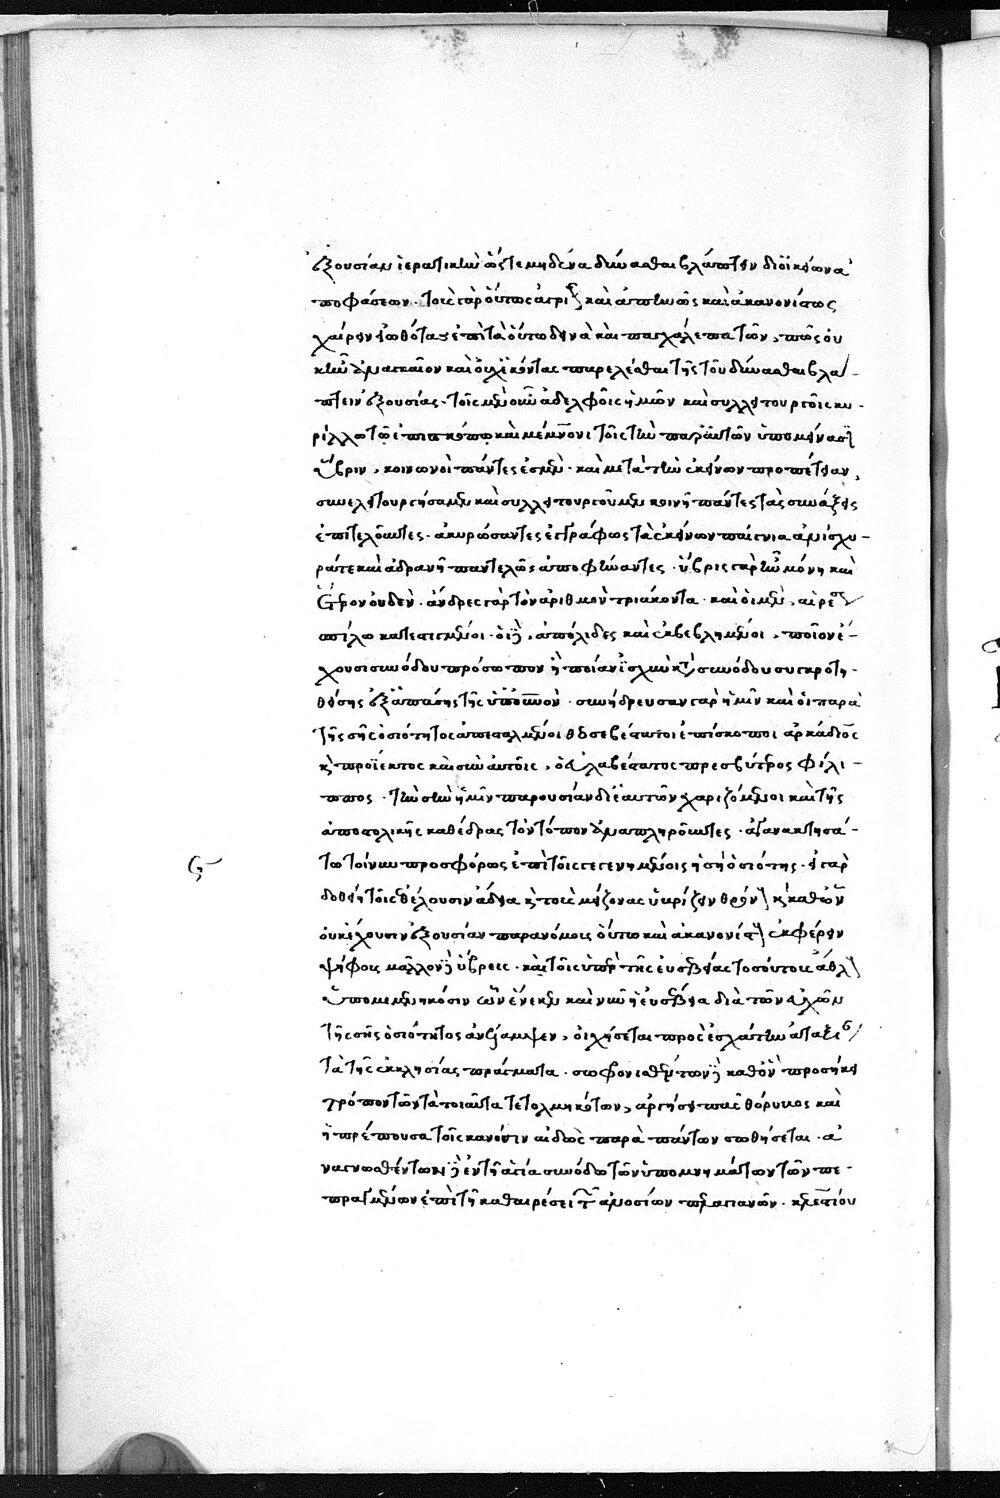 ἐξουσίαν ἱερατικὴν ὥστε μηδένα δύνασθαι βλάπτειν δι' ἐκείνων ἀ
ποφάσεων. τοῖς γὰρ οὕτως ἀγρί καὶ ἁπλῶς καὶ ἀκανονίστως
χαίρειν εἰωθότας ἐπὶ τὰ οὕτω δεινὰ καὶ πασχάλεπα τῶν, πῶς οὐ
κ ἦν ἀναγκαῖον καὶ οὐχ ἑκόντας παρελέσθαι τῆς τοῦ δύνασθαι βλά-
πτειν ἐξουσίας. τοῖς μὲν οὖν ἀδελφοῖς ἡμῶν καὶ συλλειτουργοῖς κυ-
ρίλλω τῶ ἐπισκόπω καὶ μέμνονι τοῖς τὴν παρ' αὐτῶν ὑπομείνασι
ὕβριν, κοινωνοὶ πάντες ἐσμὲν. καὶ μετὰ τὴν ἐκείνων προπέτειαν,
συνελειτουργήσαμεν καὶ συλλειτουργοῦμεν κοινῆ πάντες τὰς συνάξεις
ἐπιτελοῦντες. ἀκυρώσαντες ἐγγράφως τὰ ἐκείνων παίγνια ἀνίσχυ-
ρά τε καὶ ἀδρανῆ παντελῶς ἀποφήναντες. ὕβρις γὰρ ἦν μόνη καὶ
ἕτερον οὐδέν. ἄνδρες γὰρ τὸν ἀριθμὸν τριάκοντα. καὶ οἱ μὲν, αἱρε
σπίλω κατεστιγμένοι. οἱ δὲ, ἀπόλιδες καὶ ἐκβεβλημένοι, ποῖον ἔ-
χουσι συνόδου πρόσωπον ἢ ποίαν ἰσχὺν κατὰ συνόδου συγκροτη-
θείσης ἐξ ἁπάσης τῆς ὑπ' οὐρανόν. συνήδρευσαν γὰρ ἡμῖν καὶ οἱ παρὰ
τῆς σῆς ὁσιότητος ἀπεσταλμένοι θεοσεβέστατοι ἐπίσκοποι ἀρκάδιός
καὶ προΐεκτος καὶ σὺν αὐτοῖς, ὁ εὐλαβέστατος πρεσβύτερος φίλι-
ππος. τὴν σὴν ἡμῖν παρουσίαν δι' ἑαυτῶν χαριζόμενοι καὶ τῆς
ἀποστολικῆς καθέδρας τὸν τόπον ἀναπληροῦντες. ἀγανακτησά-
τω τοίνυν προσφόρως ἐπὶ τοῖς γεγενημένοις ἡ σὴ ὁσιότης. εἰ γὰρ
ϛ
δοθείη τοῖς θέλουσιν ἄδεια καὶ τοὺς μείζονας ὑβρίζειν θρόν καὶ καθ' ὧν
οὐκ ἔχουσιν ἐξουσίαν παρανόμους οὕτω καὶ ἀκανονίστ ἐκφέρειν
ψήφους μᾶλλον δὲ ὕβρεις. καὶ τοῖς ὑπὲρ τῆς εὐσεβείας τοσούτους ἄθλ
ὑπομεμενηκόσιν ὧν ἕνεκεν καὶ νῦν ἡ εὐσέβεια διὰ τῶν εὐχῶν
τῆς σῆς ὁσιότητος ἀνέλαμψεν, οἰχήσεται πρὸς ἐσχάτην ἀταξι
τὰ τῆς ἐκκλησίας πράγματα. σωφρονισθέντων δὲ καθ' ὃν προσήκει
τρόπον τῶν τὰ τοιαῦτα τετολμηκότων, ἀργήσει πᾶς θόρυβος καὶ
ἡ πρέπουσα τοῖς κανόσιν αἰδὼς παρὰ πάντων σωθήσεται. ἀ
ναγνωσθέντων δὲ ἐν τῆ ἁγία συνόδω τῶν ὑπομνημάτων τῶν πε-
πραγμένων ἐπὶ τῆ καθαιρέσει τῶν ἀνοσίων πελαγιανῶν. κελεστίου